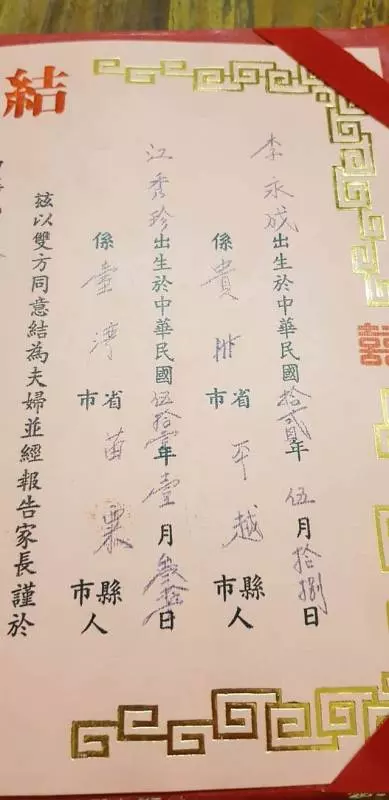 結
囍
李永成出生於中華民國拾貳年伍月拾捌日
係貴州省市平越縣市人
江秀珍出生於中華民國伍拾壹年壹月日
係臺灣省市苗栗縣市人
茲以雙方同意結為夫婦並經報告家長謹於